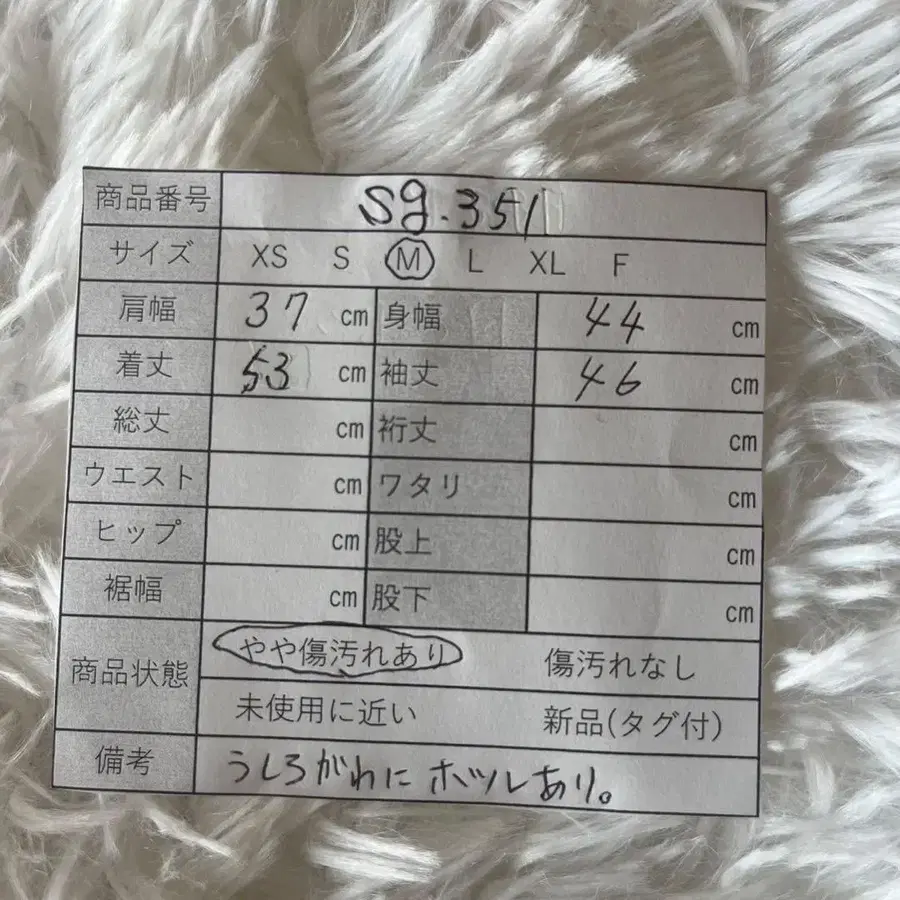 商品番号 sg.351
サイズ XS S M L XL F
肩幅 37 cm 身幅 44 cm
着丈 53 cm 袖丈 46 cm
総丈 cm 裄丈 cm
ウエスト cm ワタリ cm
ヒップ cm 股上 cm
裾幅 cm 股下 cm
商品状態 やや傷汚れあり 傷汚れなし
未使用に近い 新品(タグ付)
備考 うしろがわにホツレあり。